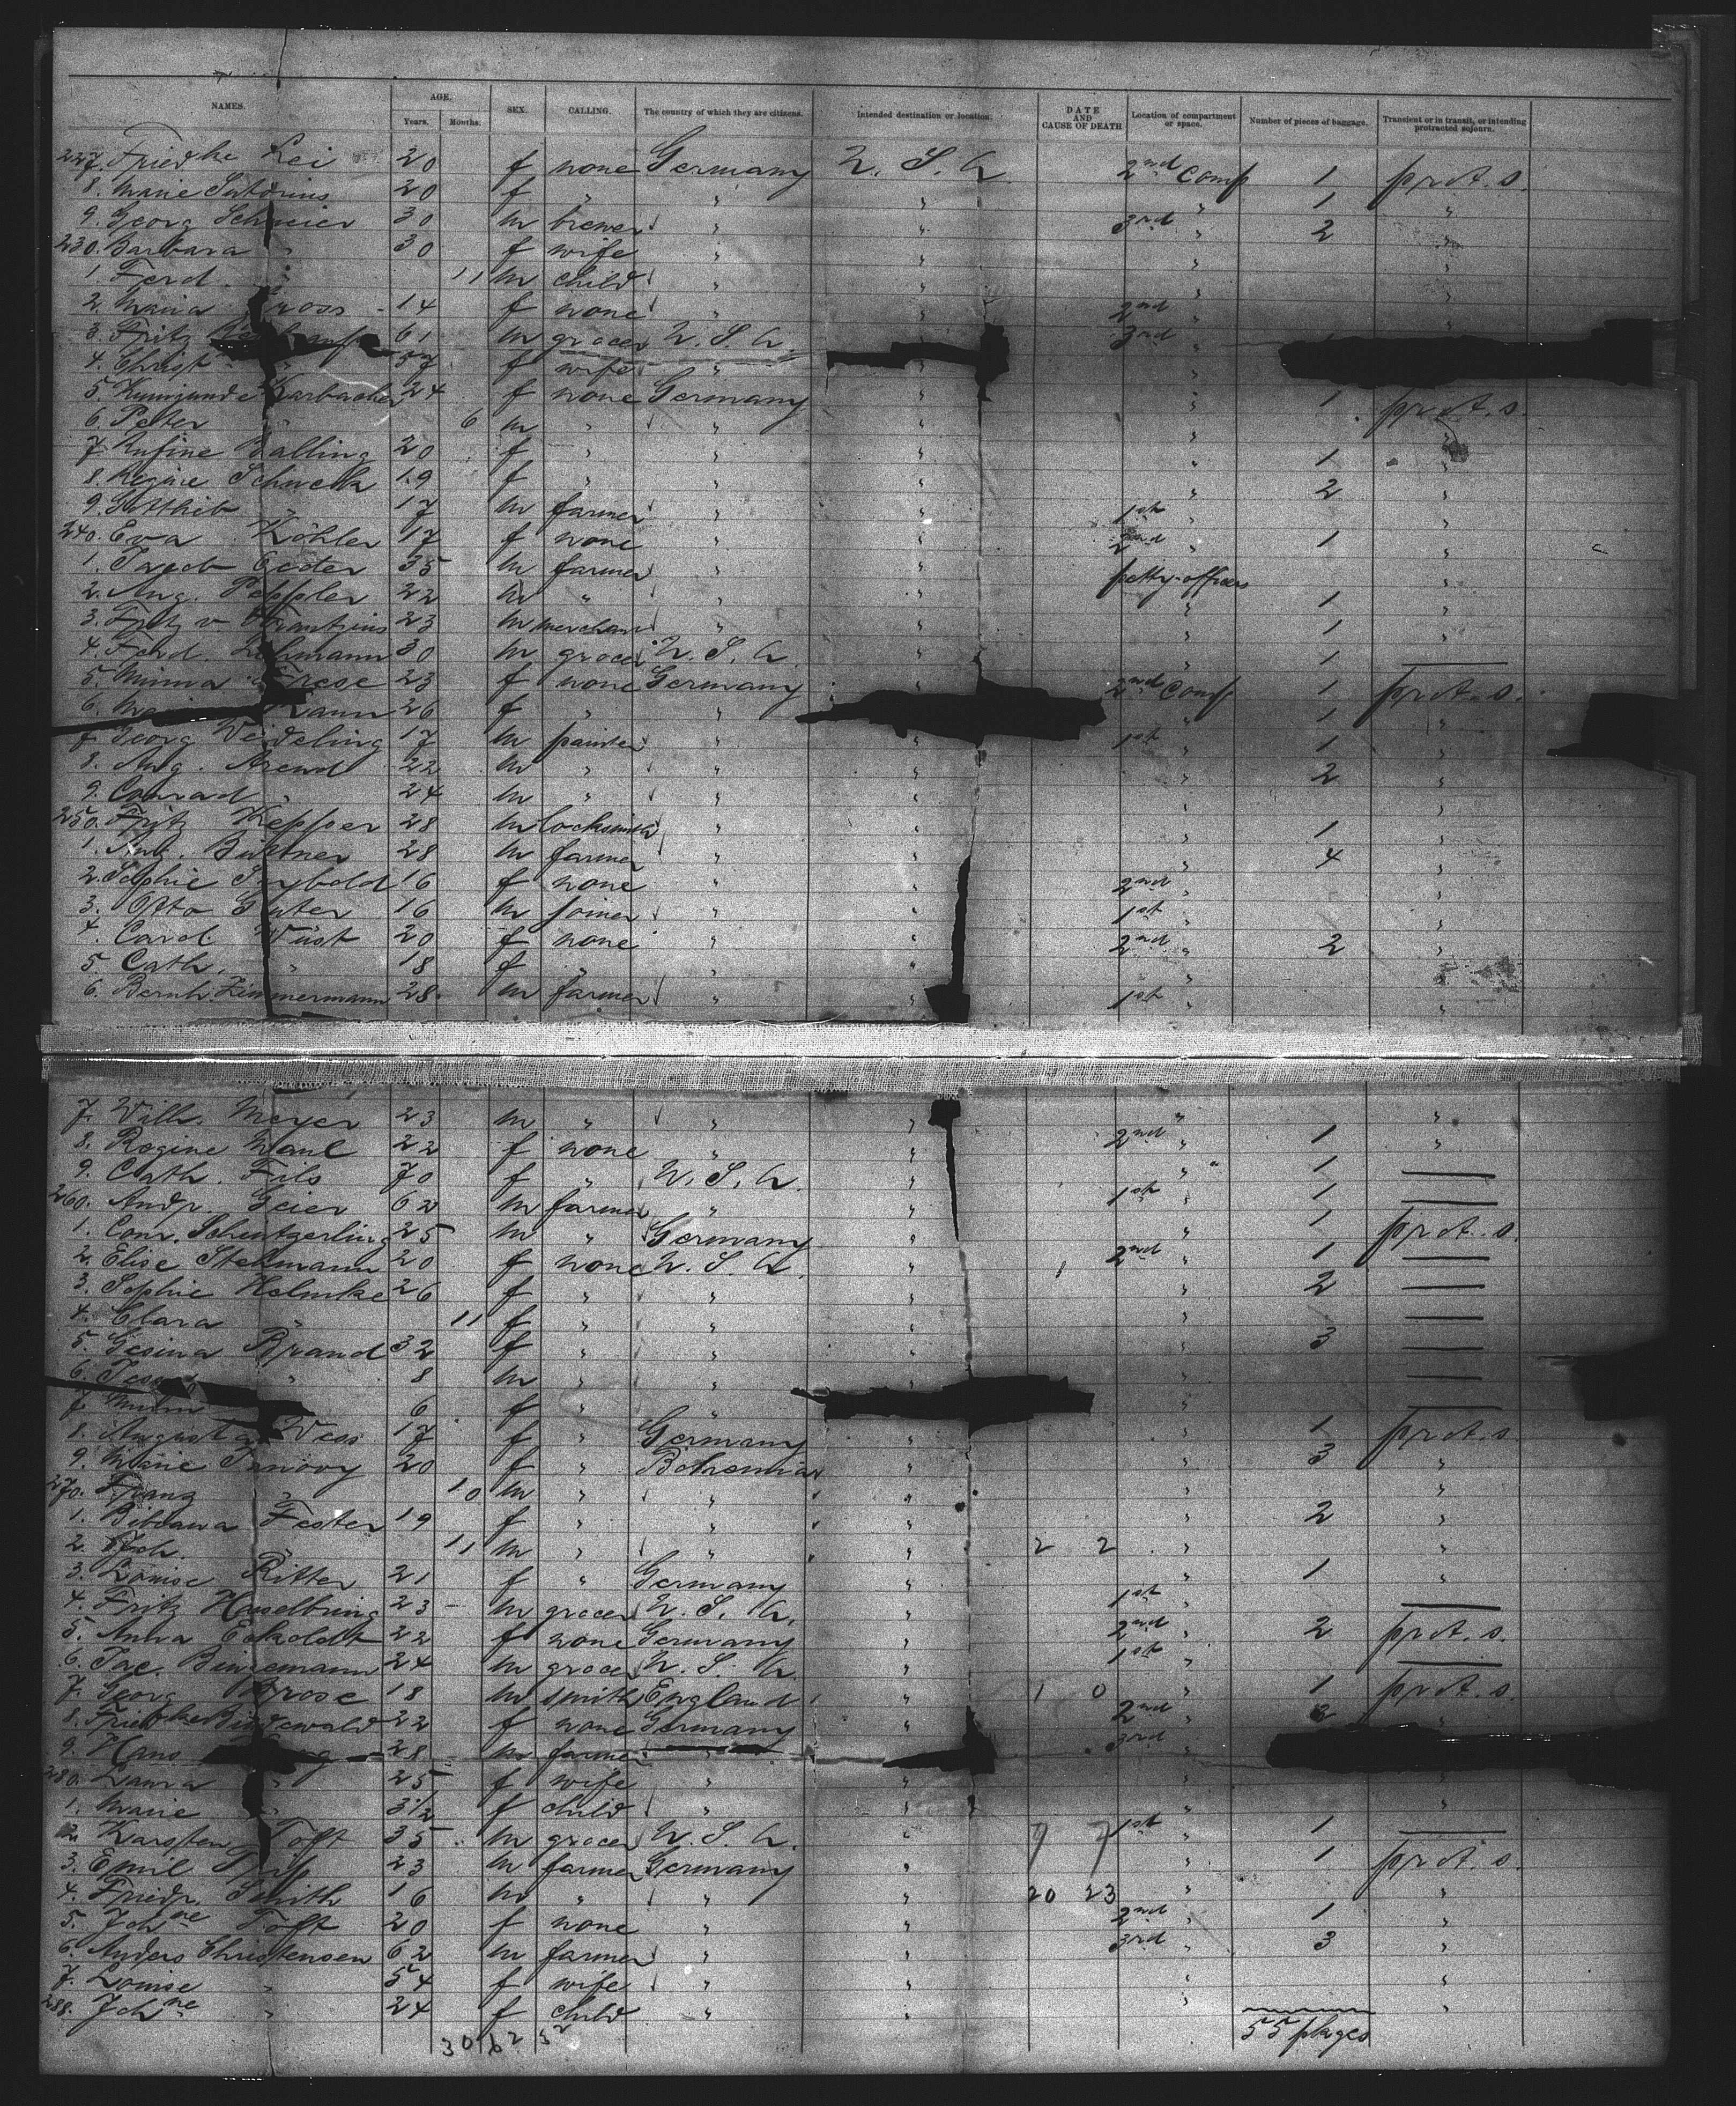 NAMES. AGE. SEX. CALLING. The country of which they are citizens. Intended destination or location. DATE AND CAUSE OF DEATH Location of compartment or space. Number of pieces of baggage. Transient or in transit, or intending protracted sojourn.
Years. Months.
227. Friedke Lei 20 f none Germany U. S. A. 2nd Comp 1 prot. s.
8. Marie Sartorius 20 f " " " " 1 "
9. Georg Schreier 30 m brewer " " 3rd " 2 "
230. Barbara " 30 f wife " " " "
1. Ferd. " 11 m child " " " "
2. Maria 14 f none " " 2nd " "
3. Fritz 61 m grocer U. S. A. 3rd "
4. Christ. " 57 f wife " " "
5. Kunigunde Karbacher 24 f none Germany " " 1 prot. s.
6. Peter " 6 m " " " " "
7. Rufine Balling 20 f " " " " 1 "
8. Regine Schweck 19 f " " " " 2 "
9. Gotthib " 17 m farmer " " 1st " "
240. Eva Köhler 17 f none " " 2nd " 1 "
1. Jacob 35 m farmer " " petty-officers "
2. Aug. Peppler 22 m " " " " 1 "
3. Fritz v. Frantzius 23 m merchant " " " 1 "
4. Ferd. Lehmann 30 m grocer U. S. A. " " 1 —
5. Minna Frese 23 f none Germany " 2nd Comp 1 prot. s.
6. 26 f " " " 1 "
7. Georg Weideling 17 m painter " " 1st " 1 "
8. Aug. Arend 22 m " " " " 2 "
9. Conrad " 24 m " " " " "
250. Fritz Kepper 28 m locksmith " " " 1 "
1. Büttner 28 m farmer " " " 4 "
2. Sophie Seybold 16 f none " " 2nd " "
3. Otto Guter 16 m joiner " " 1st " "
4. Carol. Wüst 20 f none " " 2nd " 2 "
5. Cath. " 18 f " " " " "
6. Bernh. Zimmermann 28 m farmer " " 1st " "
7. Wilh. Meyer 23 m " " " " "
8. Regine Maul 22 f none " " 2nd " 1 "
9. Cath. Fils 70 f " U. S. A. " " 1 —
260. Andr. Geier 62 m farmer " " 1st " 1 —
1. Conr. Schentzerling 25 m " Germany " " 1 prot. s.
2. Elise Stehmann 20 f none U. S. A. " 2nd " 1 —
3. Sophie Helmke 26 f " " " " 2 —
4. Clara " 11 f " " " " —
5. Gesina Brand 32 f " " " " 3 —
6. " 8 m " " " " —
7. 6 f " " " —
8. Augusta Wess 17 f " Germany " " 1 prot. s.
9. Marie Janovy 20 f " Bohemia " " 3 "
270. Franz " 10 m " " " " "
1. Bibiana Fester 19 f " " " " 2 "
2. Joh. " 11 m " " " 2 2 " "
3. Louise Ritter 21 f " Germany " " 1 "
4. Fritz Hasselbring 23 m grocer U. S. A. " 1st " —
5. Anna Eckoldt 22 f none Germany " 2nd " 2 prot. s.
6. Jac. 24 m grocer U. S. A. " 1st " —
7. Georg Brose 18 m smith England " 1 0 " 1 prot. s.
8. Friedke Bindewald 22 f none Germany " 2nd " 2 "
9. Hans 28 m farmer " 3rd "
280. Laura " 25 f wife " " " "
1. Marie " 3½ f child " " " "
2. Karsten Toft 35 m grocer U. S. A. " 9 7 1st " 1 —
3. Emil 23 m farmer Germany " " 1 prot. s.
4. Friedr. Smith 16 m " " " 20 23 " "
5. Johne Toft 20 f none " " 2nd " 1 "
6. Anders Christensen 62 m farmer " " 3rd " 3 "
7. Louise " 54 f wife " " " "
288. Johne " 24 f child " " " "
30 62 52 55 pkges